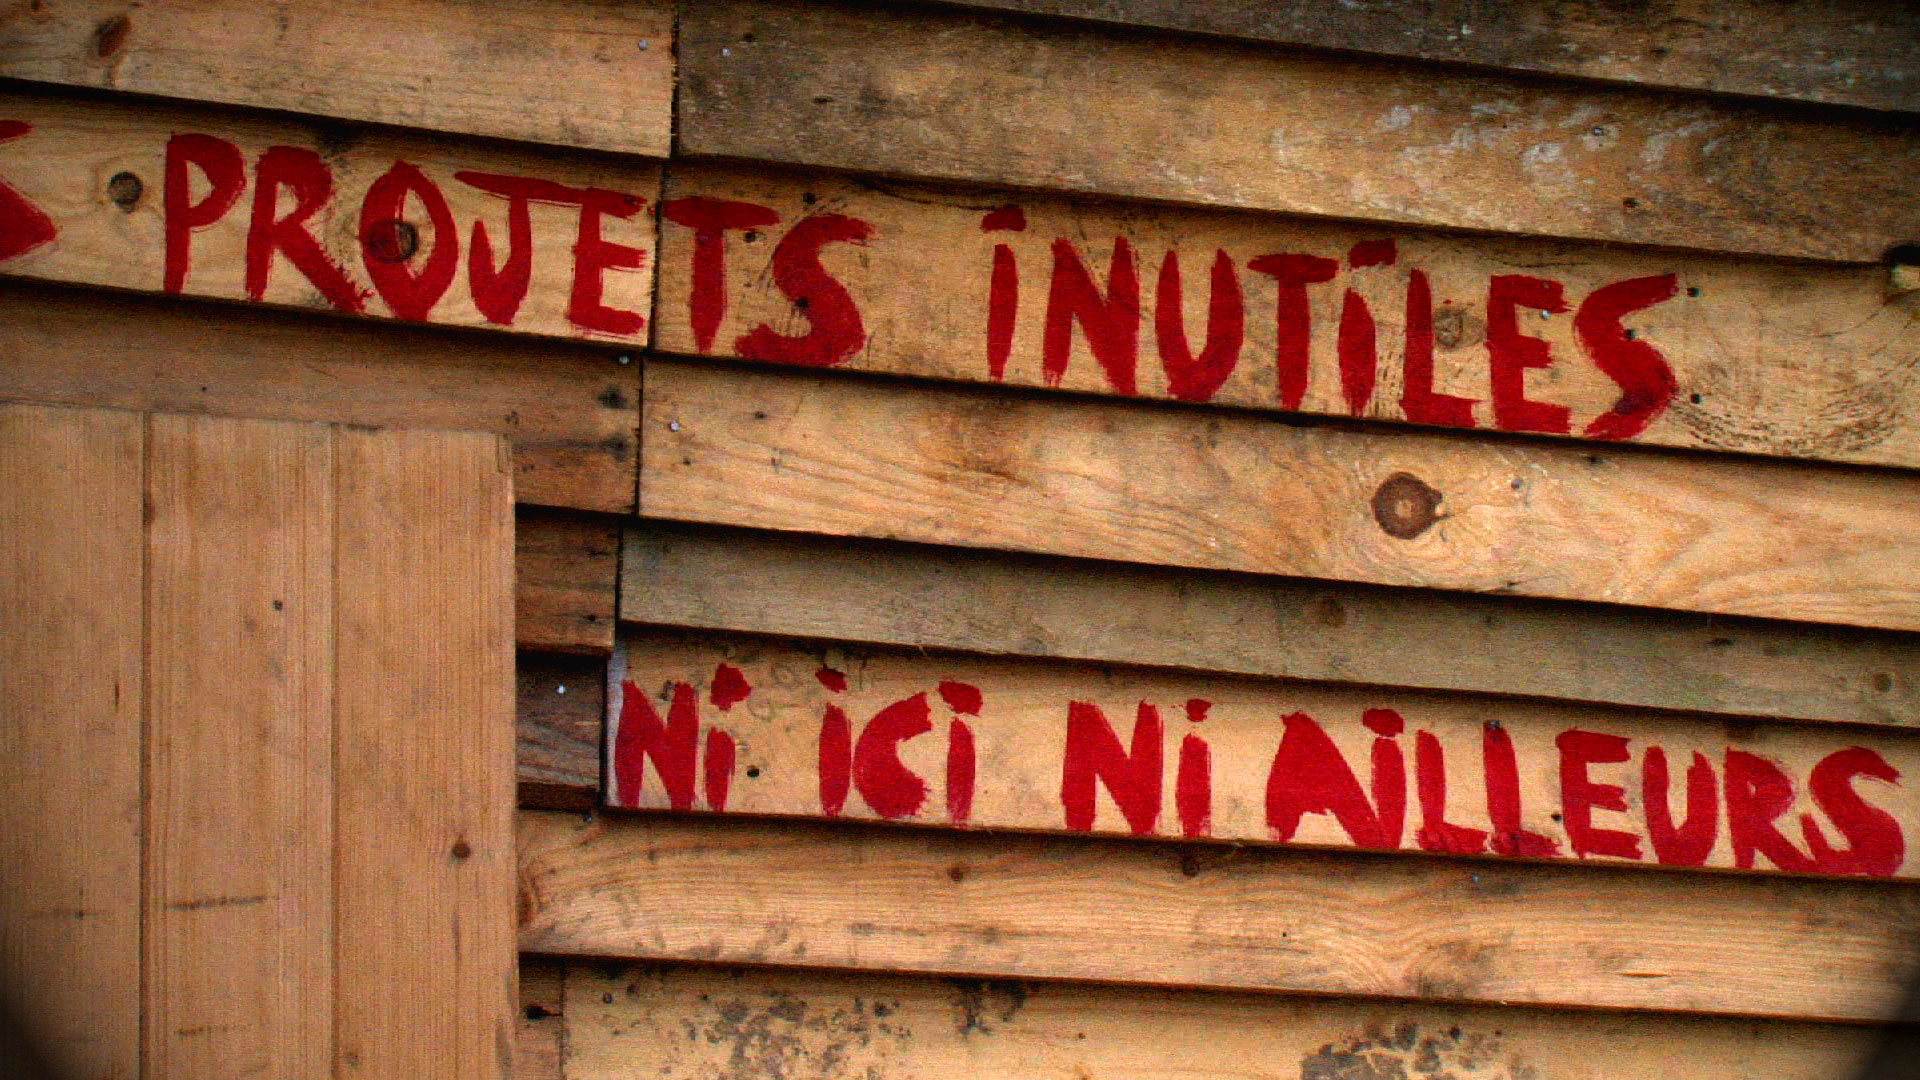 PROJETS iNUTiLES
Ni iCi Ni AiLLEURS